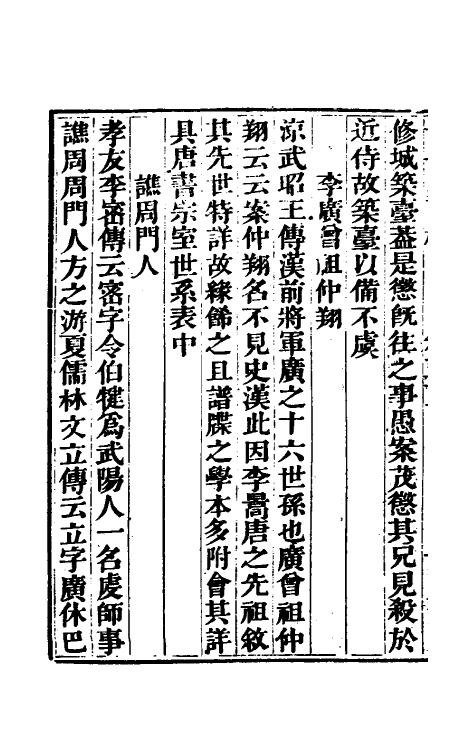 修城築臺葢是懲旣往之事愚案茂懲其兄見殺於
近侍故築臺以備不虞
李廣曾祖仲翔
涼武昭王傳漢前將軍廣之十六世孫也廣曾祖仲
翔云云案仲翔名不見史漢此因李暠唐之先祖敘
其先世特詳故緣飾之且譜牒之學本多附會其詳
具唐書宗室世系表中
譙周門人
孝友李密傳云密字令伯犍爲武陽人一名虔師事
譙周周門人方之游夏儒林文立傳云立字廣休巴